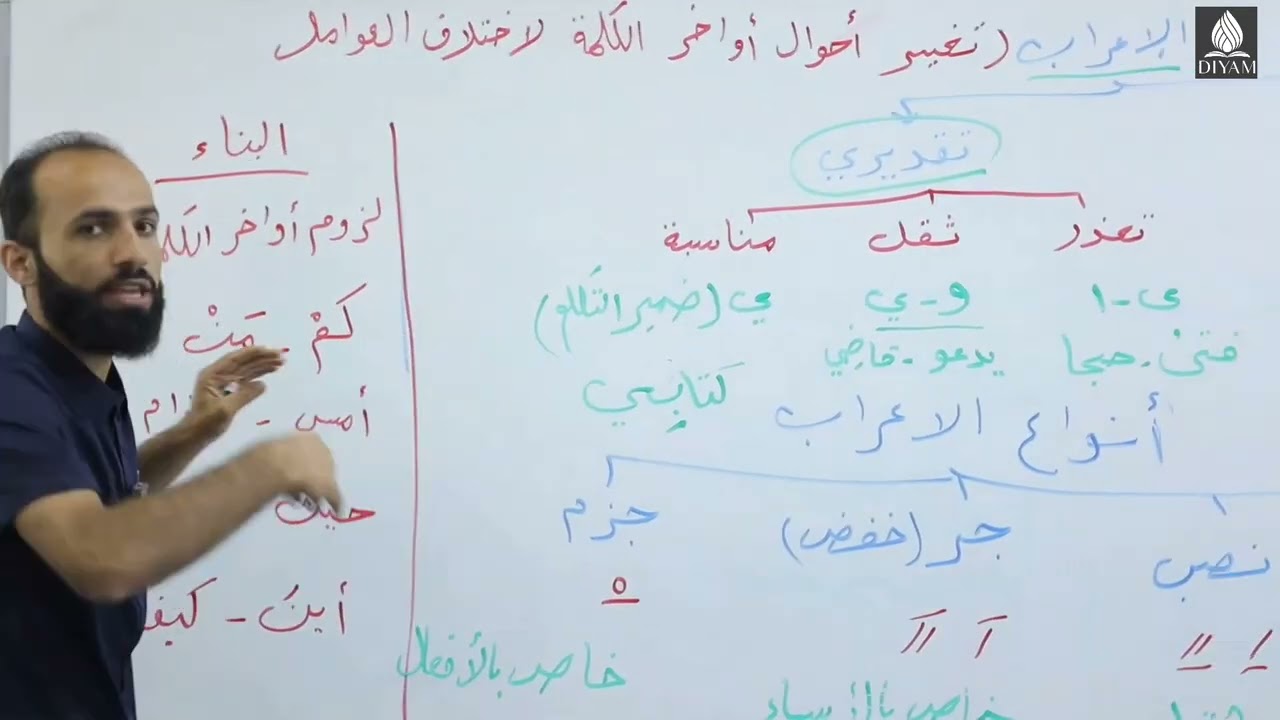 الاعراب (تغيير أحوال أواخر الكلمة لاختلاف العوامل
DIYAM
تقديري
تعذر ثقل مناسبة
ى - ا
و - ي
ي (ضمير التكلم)
فتى - حجا
يدعو - قاضي
كتابي
أنواع الاعراب
نصب
جر (خفض)
جزم
خاص بالأسماء
خاص بالأفعال
البناء
لزوم أواخر
كمْ - مَنْ
أمس -
حيث
أينَ - كيف